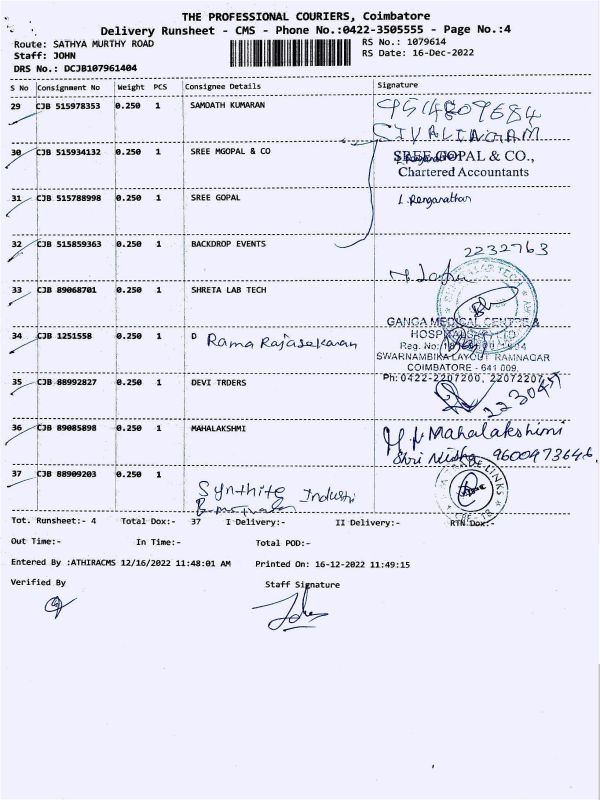 THE PROFESSIONAL COURIERS, Coimbatore
Delivery Runsheet - CMS - Phone No.:0422-3505555 - Page No.:4
Route: SATHYA MURTHY ROAD RS No.: 1079614
Staff: JOHN RS Date: 16-Dec-2022
DRS No.: DCJB107961404
S No Consignment No Weight PCS Consignee Details Signature
29 CJB 515978353 0.250 1 SAMOATH KUMARAN
SIVALINGAM
30 CJB 515934132 0.250 1 SREE MGOPAL & CO SREE GOPAL & CO.,
Chartered Accountants
31 CJB 515788998 0.250 1 SREE GOPAL L. Renganathan
32 CJB 515859363 0.250 1 BACKDROP EVENTS 2232763
33 CJB 89068701 0.250 1 SHRETA LAB TECH
GANGA MEDICAL CENTRE &
34 CJB 1251558 0.250 1 D Rama Rajasekaran HOSPITALS
SWARNAMBIKA LAYOUT RAMNAGAR
COIMBATORE - 641 009.
35 CJB 88992827 0.250 1 DEVI TRDERS Ph: 0422-2207200,
36 CJB 89085898 0.250 1 MAHALAKSHMI Mahalakshimi
9600473646
37 CJB 88909203 0.250 1
Synthite Industri
Tot. Runsheet:- 4 Total Dox:- 37 I Delivery:- II Delivery:- RTN Dox:-
Out Time:- In Time:- Total POD:-
Entered By :ATHIRACMS 12/16/2022 11:48:01 AM Printed On: 16-12-2022 11:49:15
Verified By Staff Signature